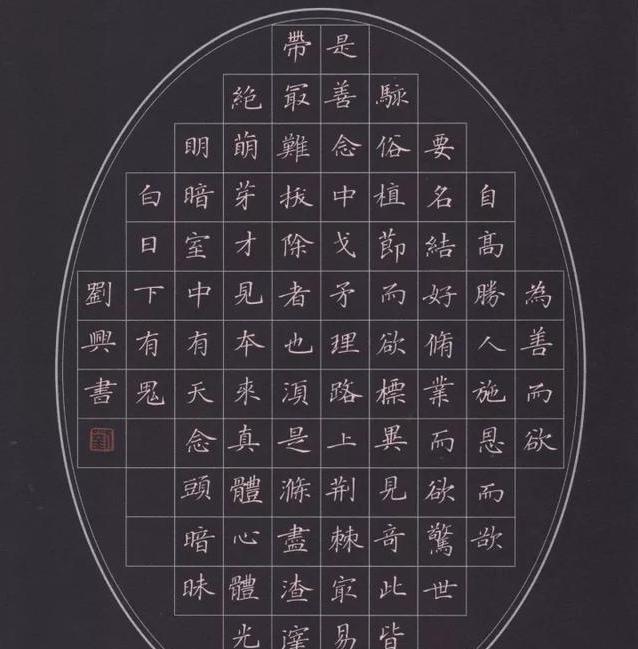 為善而欲
自高勝人施恩而欲
要名結好脩業而欲驚世
駭俗植節而欲標異見奇此皆
是善念中戈矛理路上荆棘最易
帶最難拔除者也須是滌盡渣滓
絕萌芽才見本來真體心體光
明暗室中有天念頭暗昧
白日下有鬼
劉興書